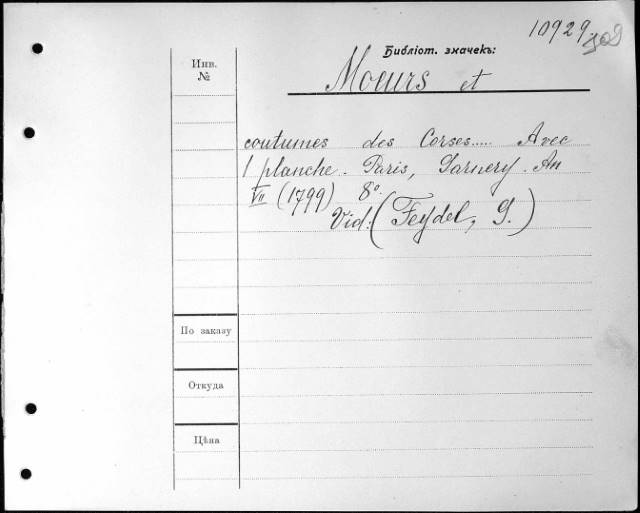 10929
Библіот. значекъ:
Инв.
№
Moeurs et
coutumes des Corses..... Avec
1 planche. Paris, Garnery. An
VII (1799) 8º.
Vid: (Feydel, G.)
По заказу
Откуда
Цѣна